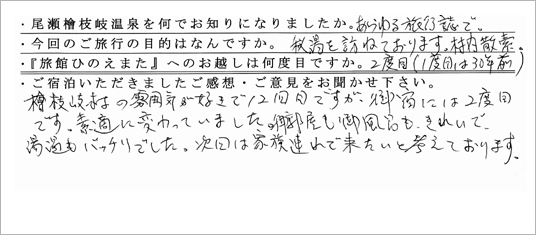 ・尾瀬檜枝岐温泉を何でお知りになりましたか。あらゆる旅行誌で。
・今回のご旅行の目的はなんですか。 秘湯を訪ねております。村内散索。
・『旅館ひのえまた』へのお越しは何度目ですか。2度目（1度目は30年前）
・ご宿泊いただきましたご感想・ご意見をお聞かせ下さい。
檜枝岐村の雰囲気が好きで12回目ですが、御宿には2度目
です。素適に変わっていました。御部屋も御風呂も、きれいで、
湯温もバッチリでした。次回は家族連れで来たいと考えております。